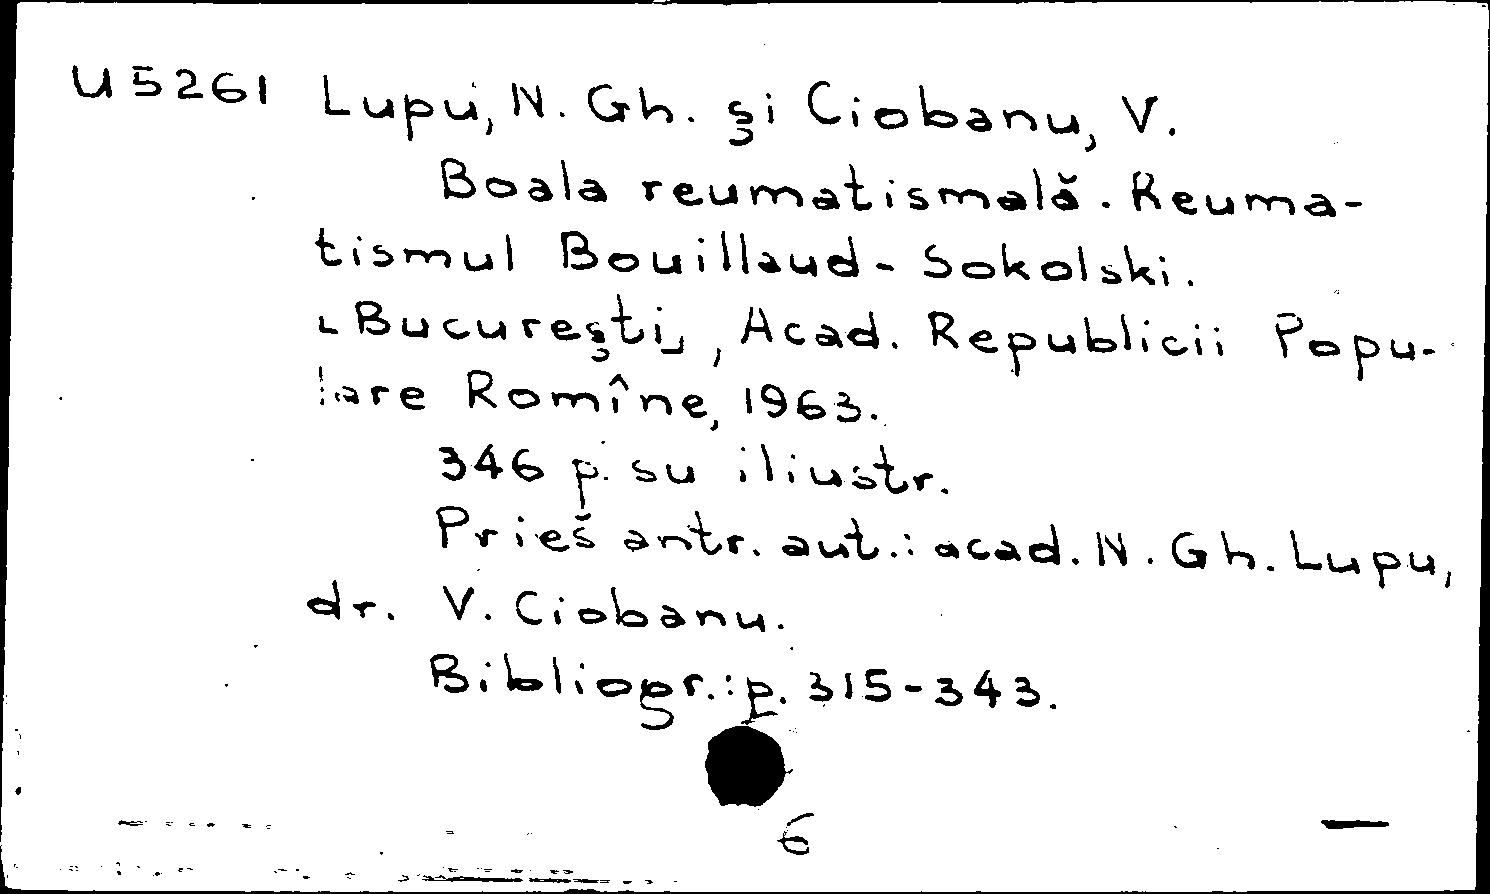 U5261 Lupu, N. Gh. şi Ciobanu, V.
Boala reumatismală. Reuma-
tismul Bouillaud - Sokolski.
[Bucureşti], Acad. Republicii Popu-
lare Romîne, 1963.
346 p. su iliustr.
Prieš antr. aut.: acad. N. Gh. Lupu,
dr. V. Ciobanu.
Bibliogr.: p. 315-343.
6